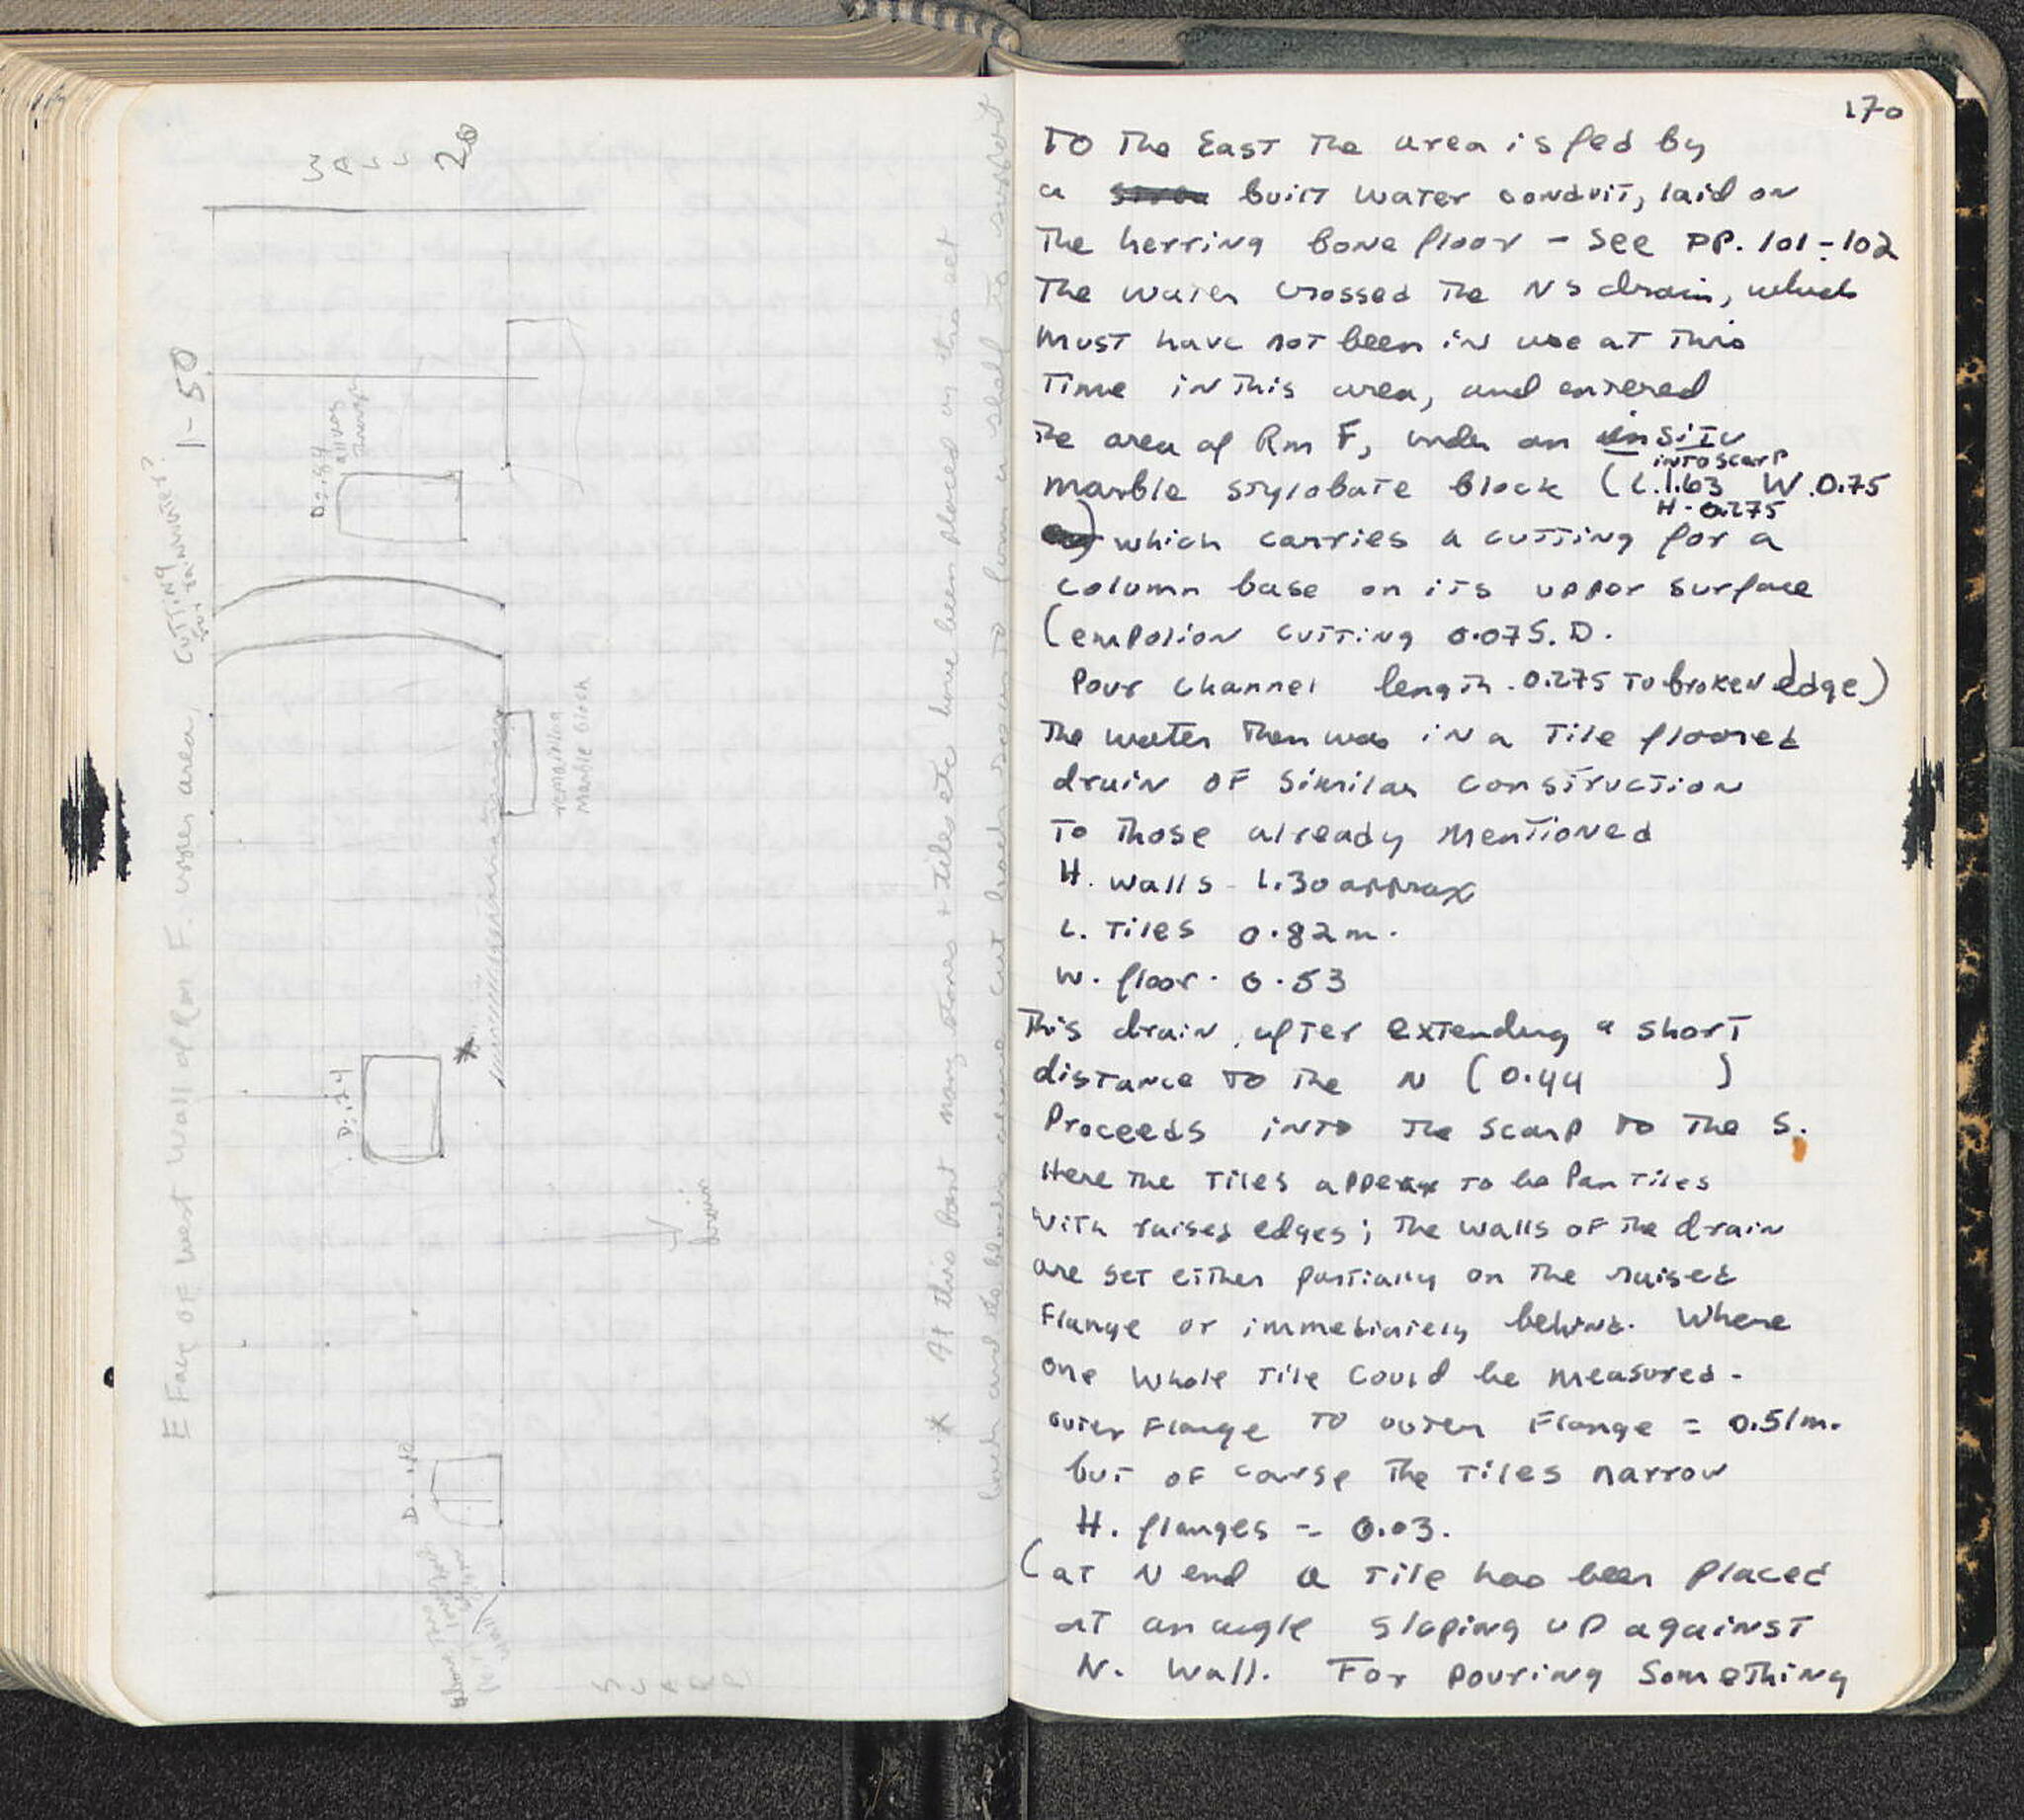 WALL 28
1-50
CUTTING
E Face of West Wall of Rm F. upper area,
D: .184
remaining
Marble block
*
D: .24
drain
D. .40
SCARP
* At this point many stones + tiles etc have been placed as tho set
170
To The East The area is fed by
a built water conduit, laid on
The herring bone floor - See PP. 101-102
The water crossed The NS drain, which
Must have not been in use at This
Time in This area, and entered
The area of Rm F, under an in situ
into scarp
marble stylobate block (L. 1.63 W. 0.75
H - 0.275
) which carries a cutting for a
column base on its upper surface
(empolion cutting 0.075. D.
Pour channel length. 0.275 To broken edge)
The water Then was in a Tile floored
drain OF Similar construction
To Those already Mentioned
H. walls - 1.30 approx
L. Tiles 0.82 m.
W. floor. 0.53
This drain, after extending a short
distance To The N (0.44 )
Proceeds into The Scarp To The S.
Here The Tiles appear To be Pan Tiles
With raised edges; The walls of The drain
are set either partially on The raised
Flange or immediately behind. Where
one whole Tile could be measured -
outer Flange To outer Flange = 0.51m.
but of course The Tiles narrow
H. flanges - 0.03.
(at N end a Tile has been Placed
at an angle Sloping up against
N. Wall. For pouring Something